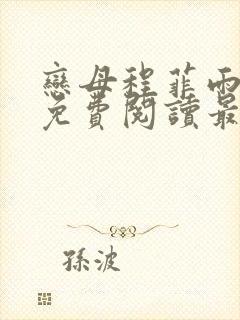 戀母程菲雨
免費閱讀最
孫波